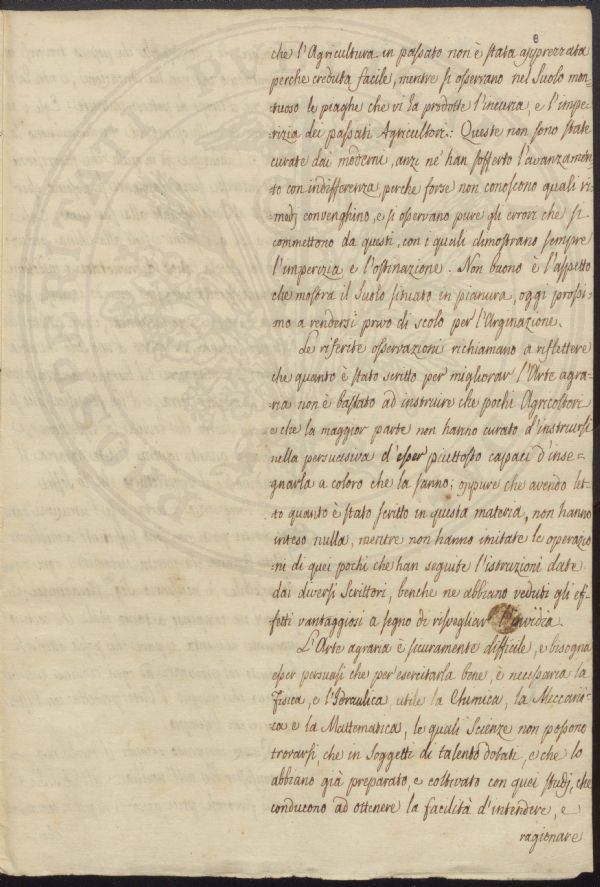 che l'Agricultura in passato non è stata apprezzata
perche creduta facile, mentre si osservano nel Suolo mon-
tuoso le piaghe che vi ha prodotte l'incuria, e l'impe-
rizia dei passati Agricoltori: Queste non sono state
curate dai moderni, anzi né han sofferto l'avanzamen-
to con indifferenza, perche forse non conoscono quali ri-
medj convenghino, e si osservano pure gli errori che si
commettono da questi, con i quali dimostrano sempre
l'imperizia e l'ostinazione. Non buono è l'aspetto
che mostra il Suolo situato in pianura, oggi prossi-
mo a rendersi privo di scolo per l'Arginazione.
Le riferite osservazioni richiamano a riflettere
che quanto è stato scritto per migliorar l'Arte agra-
ria non è bastato ad instruire che pochi Agricoltori
e che la maggior parte non hanno curato d'instruirsi
nella persuasiva d'esser piuttosto capaci d'inse-
gnarla a coloro che la fanno; oppure che avendo let-
to quanto è stato scritto in questa materia, non hanno
inteso nulla, mentre non hanno imitate le operazio
ni di quei pochi che han seguite l'istruzioni date
dai diversi Scrittori, benche ne abbiano veduti gli ef-
fetti vantaggiosi a segno di risvegliar l'invidia.
L'Arte agraria è sicuramente difficile, e bisogna
esser persuasi che per esercitarla bene, è necessaria la
Fisica, e l'Idraulica, utile la Chimica, la Meccani-
ca e la Mattematica, le quali Scienze non possono
trovarsi, che in Soggetti di talento dotati, e che lo
abbiano già preparato, e coltivato con quei studj, che
conducono ad ottenere la facilità d'intendere, e
ragionare